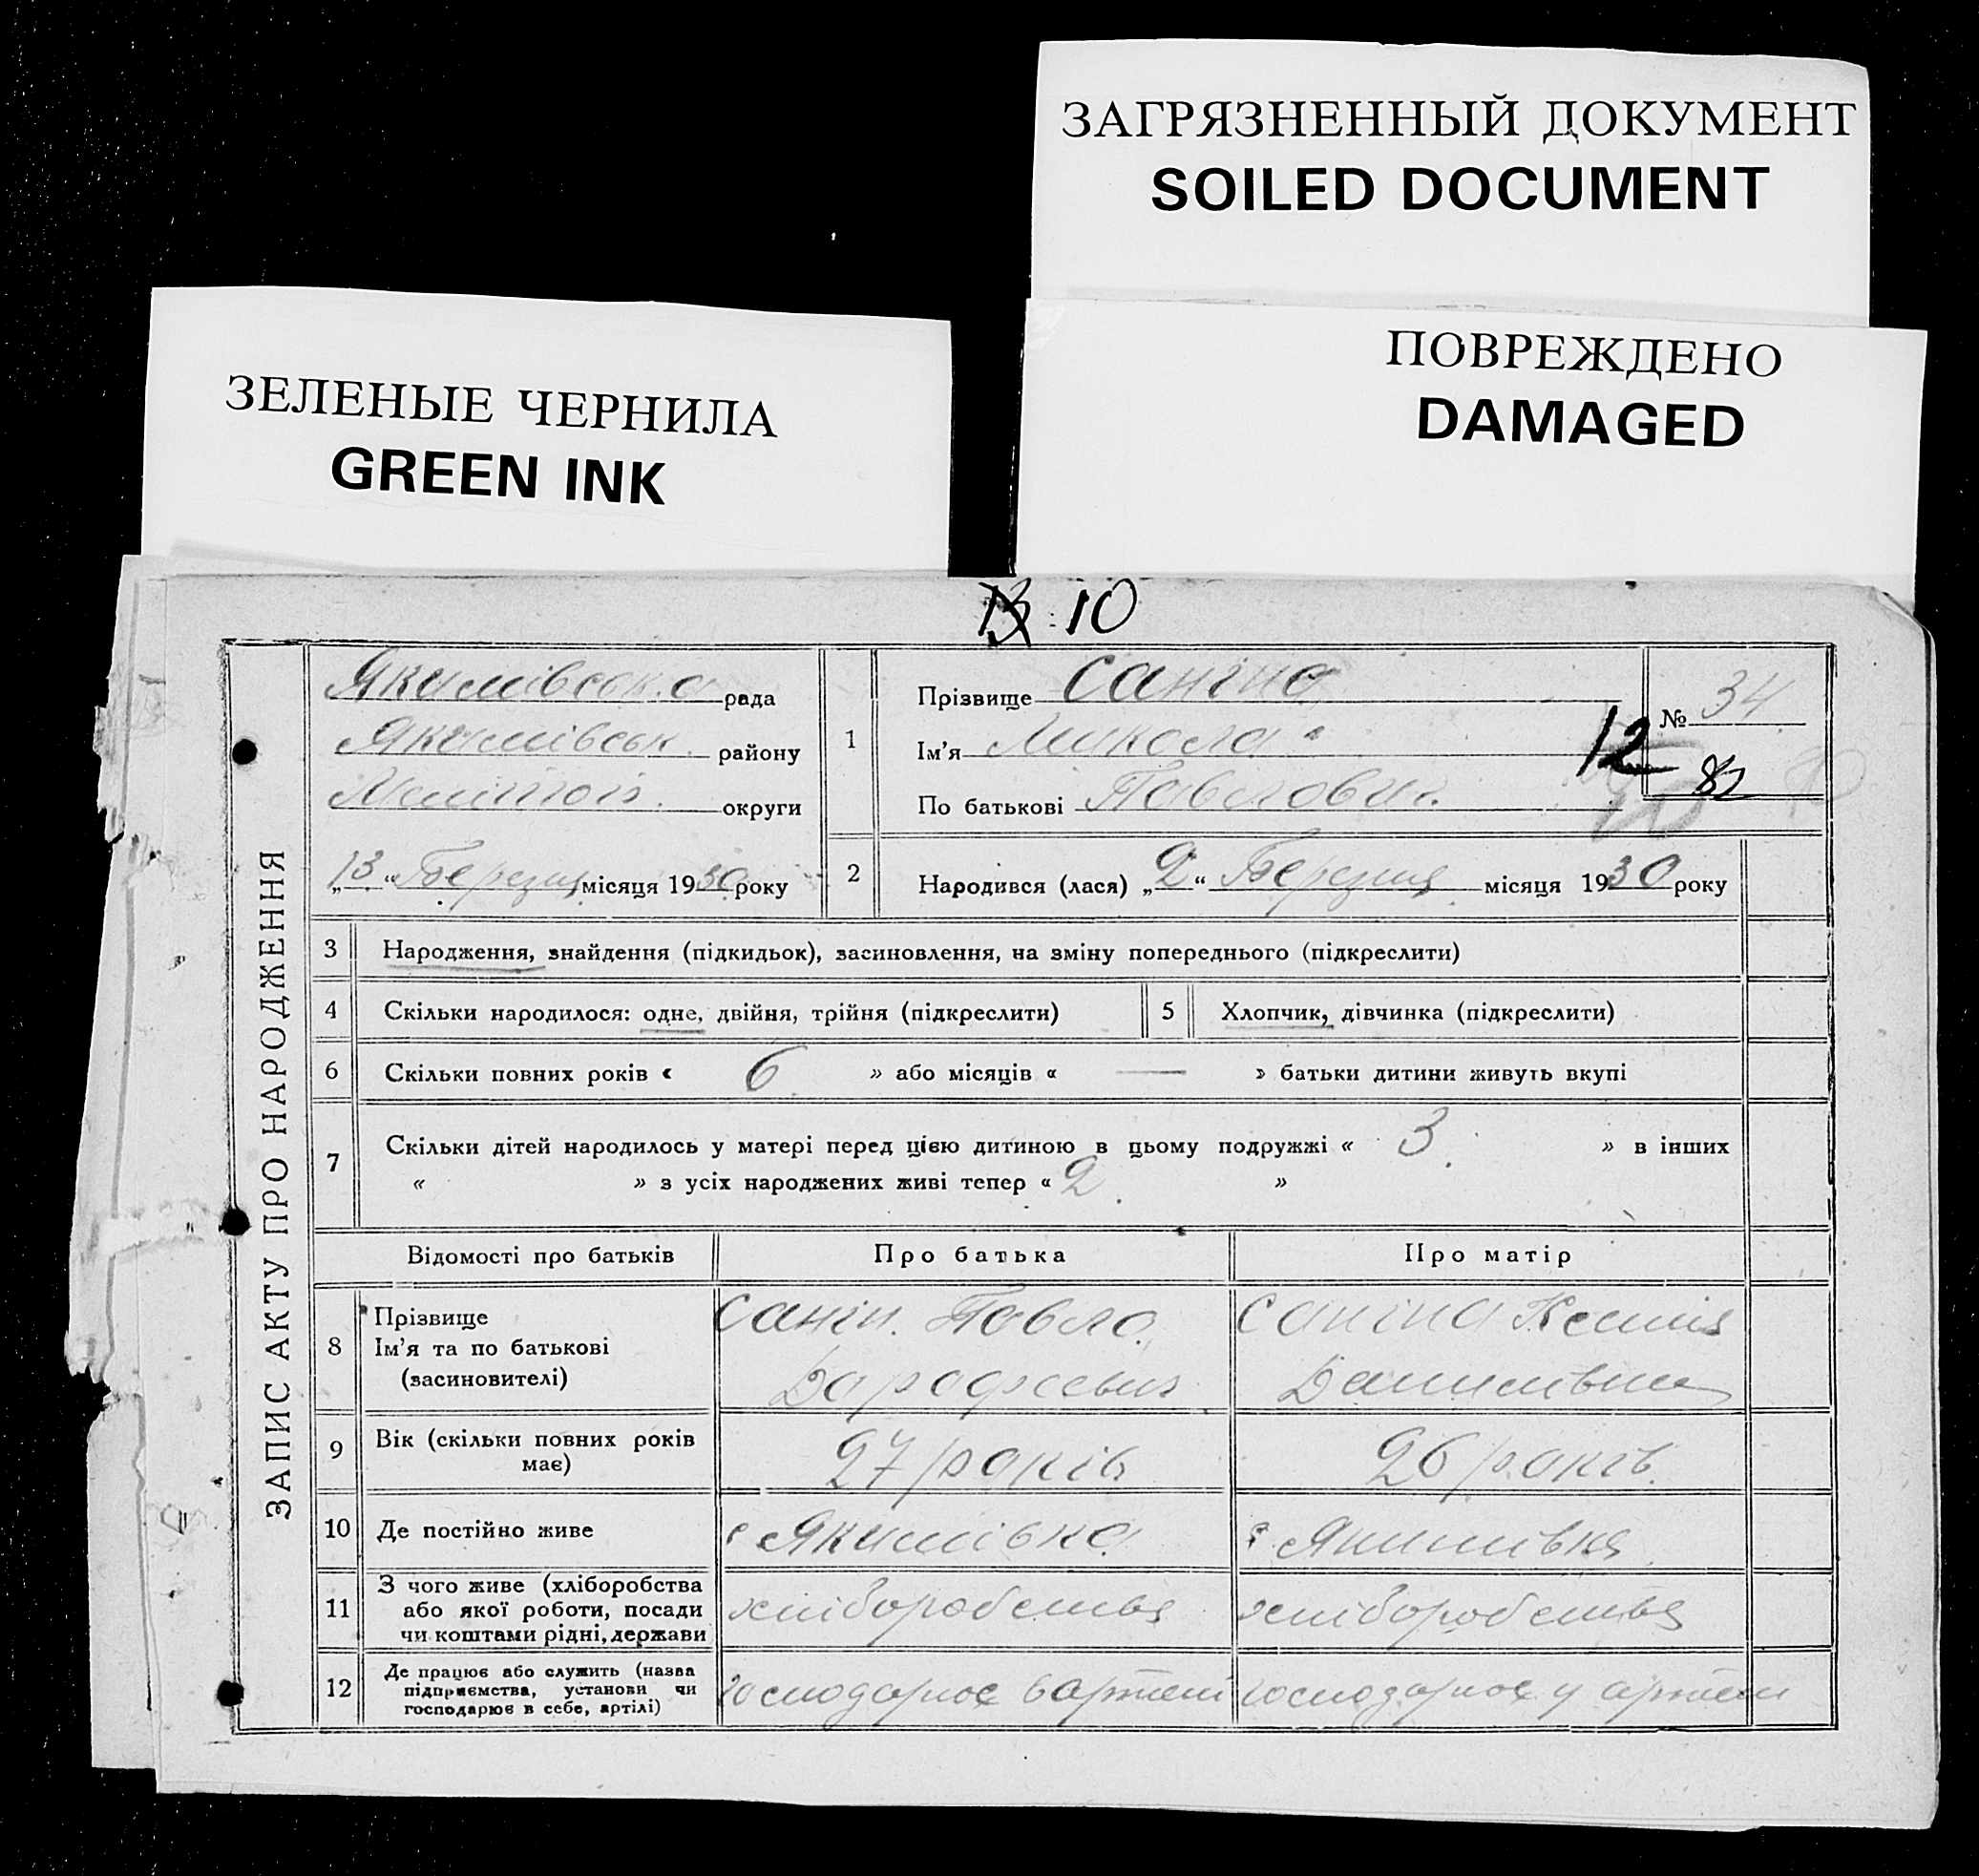 ЗАГРЯЗНЕННЫЙ ДОКУМЕНТ
SOILED DOCUMENT
ПОВРЕЖДЕНО
DAMAGED
ЗЕЛЕНЫЕ ЧЕРНИЛА
GREEN INK
10
ЗАПИС АКТУ ПРО НАРОДЖЕННЯ
Якимівська рада
Якимівськ. району
Мелітоп. округи
„13“ Березня місяця 1930 року
1
Прізвище Саніна
Ім'я Микола
По батькові Павлович
№ 34
12
82
2 Народився (лася) „2“ Березня місяця 1930 року
3 Народження, знайдення (підкидьок), засиновлення, на зміну попереднього (підкреслити)
4 Скільки народилося: одне, двійня, трійня (підкреслити) 5 Хлопчик, дівчинка (підкреслити)
6 Скільки повних років « 6 » або місяців « — » батьки дитини живуть вкупі
7 Скільки дітей народилось у матері перед цією дитиною в цьому подружжі « 3 » в інших
« » з усіх народжених живі тепер « 2 »
Відомості про батьків Про батька Про матір
8 Прізвище Санін Павло Саніна Ксенія
Ім'я та по батькові
(засновителі) Данилівна
9 Вік (скільки повних років має) 27 років 26 років
10 Де постійно живе с Якимівка с Якимівка
11 З чого живе (хліборобства хліборобства хліборобства
або якої роботи, посади
чи коштами рідні, держави
12 Де працює або служить (назва
підприємства, установи чи господарює в артелі господарює у артели
господарює в себе, артілі)